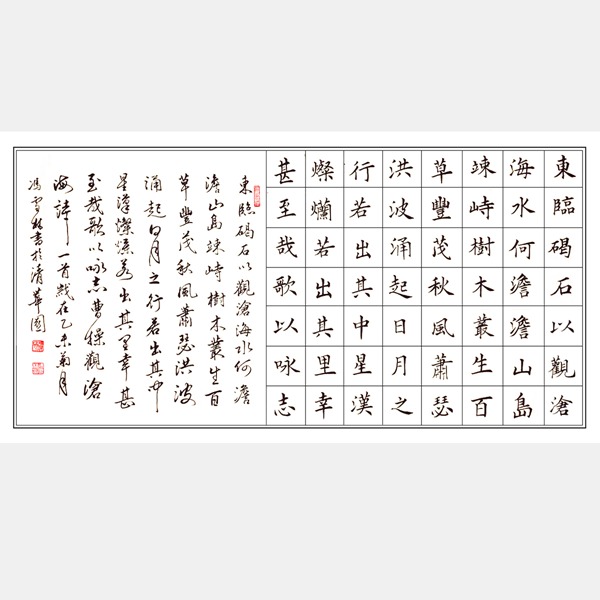 東臨碣石以觀滄
海水何澹澹山島
竦峙樹木叢生百
草豐茂秋風蕭瑟
洪波涌起日月之
行若出其中星漢
燦爛若出其里幸
甚至哉歌以咏志
東臨碣石以觀滄海水何澹
澹山島竦峙樹木叢生百
草豐茂秋風蕭瑟洪波
涌起日月之行若出其中
星漢燦爛若出其里幸甚
至哉歌以咏志曹操觀滄
海詩一首歲在乙未菊月
馮雪林書於清華園